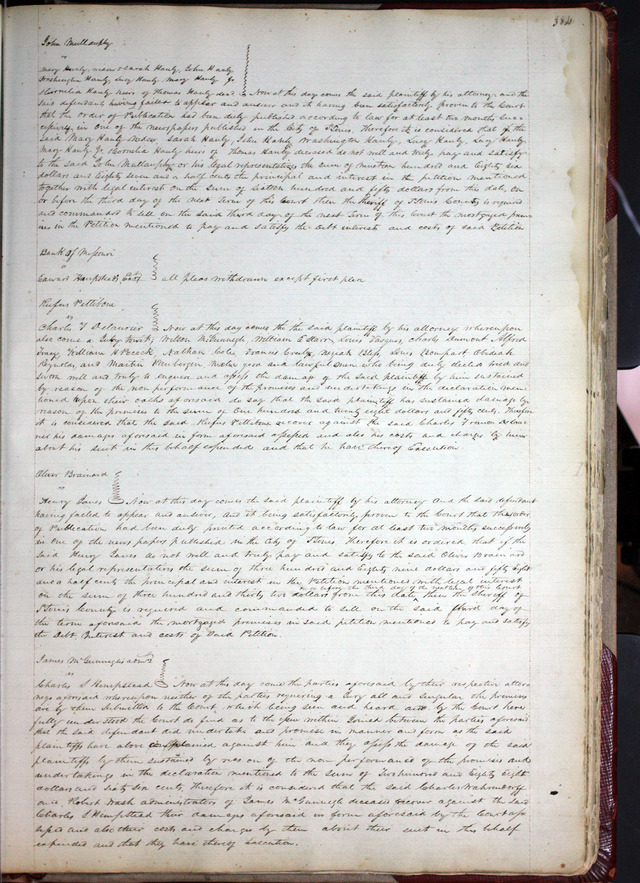 384
John Mullanphy
vs
Mary Hanly, widow & Sarah Hanly, John Hanly
Washington Hanly, Lucy Hanly, Mary Hanly Jr
& Cornelia Hanly heirs of Thomas Hanly decd Now at this day comes the said plaintiff by his attorney and the
said defendants having failed to appear and answer and it having been satisfactorily proven to the Court
that the order of Publication had been duly published according to law for at least two months suc-
cessively, in one of the newspapers published in the City of St Louis, Therefore it is considered that if the
said Mary Hanly widow Sarah Hanly, John Hanly Washington Hanly, Lucy Hanly,
Mary Hanly Jr Cornelia Hanly heirs of Thomas Hanly deceased do not well and truly pay and satisfy
to the said John Mullanphy or his legal representatives the sum of nineteen hundred and Eighty six
dollars and Eighty seven and a half cents the principal and interest in the petition mentioned
together with legal interest on the sum of sixteen hundred and fifty dollars from this date, on
or before the third day of the next Term of this Court then the Sheriff of St Louis County is required
and commanded to sell on the said third day of the next Term of this Court the mortgaged prem-
ises in the Petition mentioned to pay and satisfy the debt interest and costs of said Petition
Bank of Missouri
vs
Edward Hempstead's Exors all pleas withdrawn except first plea
Rufus Pettibone
vs
Charles F Delauriere Now at this day comes the the said plaintiff by his attorney whereupon
also come a Jury to wit; Wilson McGunnegle, William Carr, Louis Charles Alfred
William H Pocock, Nathan Francis Louis Bompart Obediah
and Martin twelve good and lawful men who being duly elected tried and
sworn well and truly to enquire and assess the damage of the said plaintiff by him sustained
by reason of the non performance of the promises and undertakings in the declaration men-
tioned upon their oaths aforesaid do say that the said plaintiff has sustained damage by
reason of the premises to the sum of One hundred and twenty eight dollars and fifty cents. Therefore
it is considered that the said Rufus Pettibone recover against the said Charles
his damages aforesaid in form aforesaid assessed and also his costs and charges by him
about his suit in this behalf expended and that he have thereof Execution.
Oliver Brainard
vs
Henry James Now at this day comes the said plaintiff by his attorney and the said defendant
having failed to appear and answer, and it being satisfactorily proven to the Court that the order
of Publication had been duly printed according to law for at least two months successively
in one of the news papers published in the City of St Louis Therefore it is ordered that if the
said Henry James do not well and truly pay and satisfy to the said Oliver Brainard
or his legal representatives the sum of three hundred and Eighty nine dollars and fifty Eight
and a half cents the principal and interest in the Petition mentioned with legal interest
on or before the third day of the next term of this Court
on the sum of three hundred and thirty two dollars from this date, then the sheriff of
St Louis County is required and commanded to sell on the said third day of
the term aforesaid the mortgaged premises in said petition mentioned to pay and satisfy
the Debt Interest and costs of said Petition.
James McGunnegle's admrs
vs
Charles S Hempstead Now at this day come the parties aforesaid by their respective attor-
neys aforesaid whereupon neither of the parties requiring a Jury all and singular the premises
are by them submitted to the Court, which being seen and heard and by the Court here
fully understood the Court do find as to the issue within Joined between the parties aforesaid
that the said defendant did undertake and promise in manner and form as the said
plaintiffs have above complained against him and they assess the damage of the said
plaintiffs by them sustained by reason of the non performance of the promises and
undertakings in the declaration mentioned to the sum of Two hundred and Eighty eight
dollars and sixty six cents, Therefore it is considered that the said Charles Wahrendorff
and Robert Wash administrators of James McGunnegle deceased recover against the said
Charles S Hempstead their damages aforesaid in form aforesaid by the Court as-
sessed and also their costs and charges by them about their suit in this behalf
expended and that they have thereof execution.